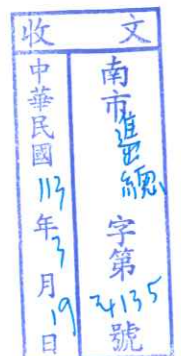 收文
南市進總字第24135號
中華民國113年3月19日